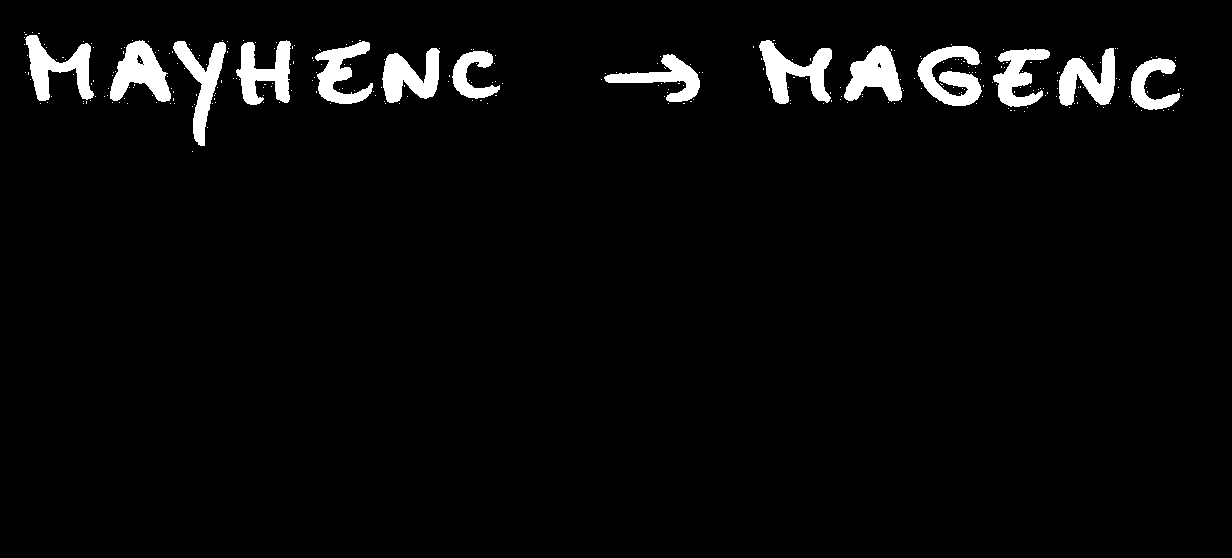 MAYHENC → MAGENC